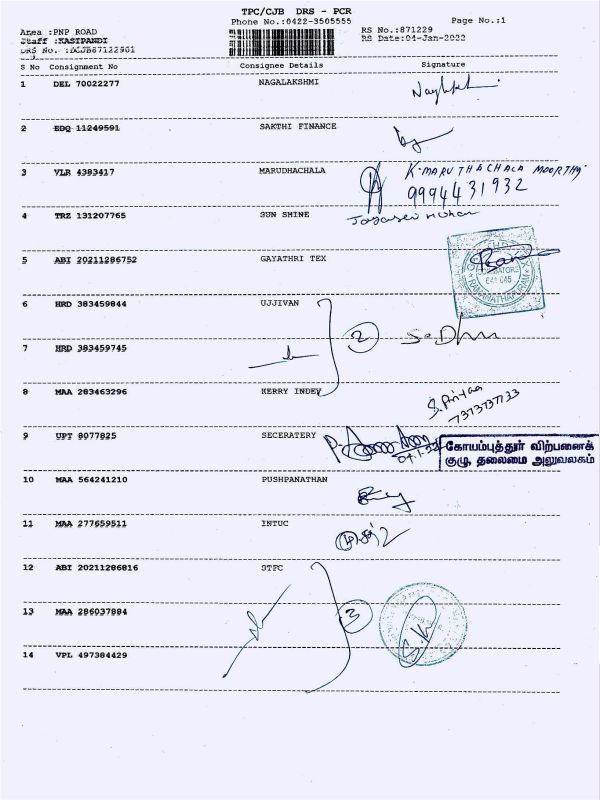 TPC/CJB DRS - PCR
Phone No.:0422-3505555 Page No.:1
Area :PNP ROAD RS No.:871229
Staff :KASIPANDI RS Date:04-Jan-2022
DRS No. :DCJB87122901
S No Consignment No Consignee Details Signature
1 DEL 70022277 NAGALAKSHMI
2 EDQ 11249591 SAKTHI FINANCE
3 VLR 4383417 MARUDHACHALA K.MARUTHACHALA MOORTHY
9994431932
4 TRZ 131207765 SUN SHINE
5 ABI 20211286752 GAYATHRI TEX
6 HRD 383459844 UJJIVAN
2
7 HRD 383459745
8 MAA 283463296 KERRY INDEV
S. Priyaa
7373737733
9 UPT 8077825 SECERATERY
கோயம்புத்தூர் விற்பனைக்
குழு, தலைமை அலுவலகம்
10 MAA 564241210 PUSHPANATHAN
11 MAA 277659511 INTUC
12 ABI 20211286816 STFC
13 MAA 286037884
3
14 VPL 497384429